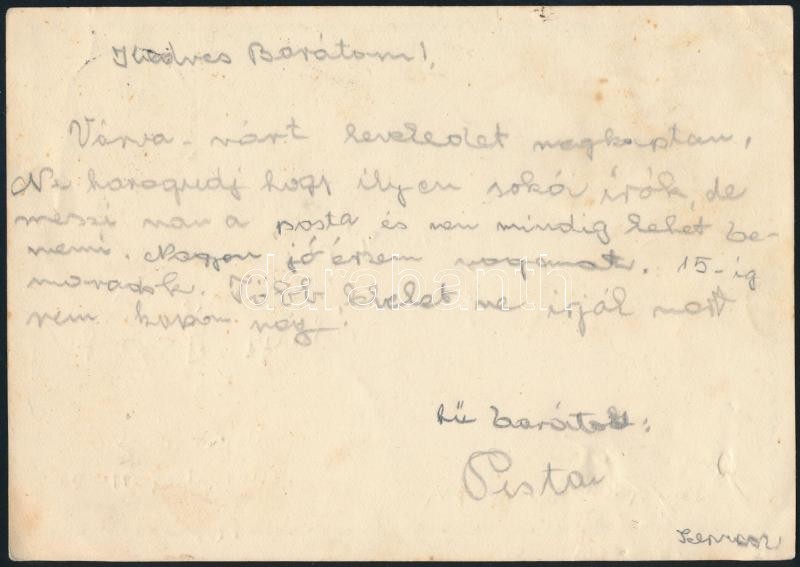 Kedves Barátom!,
Várva-várt leveledet megkaptam.
Ne haragudj hogy ilyen soká írók, de
messzi van a posta és nem mindig lehet be-
menni. Nagyon jó érzem magamat. 15-ig
maradok. Több levelet ne írjál mert
nem kapom meg.
hű barátod:
Pista
darabanth